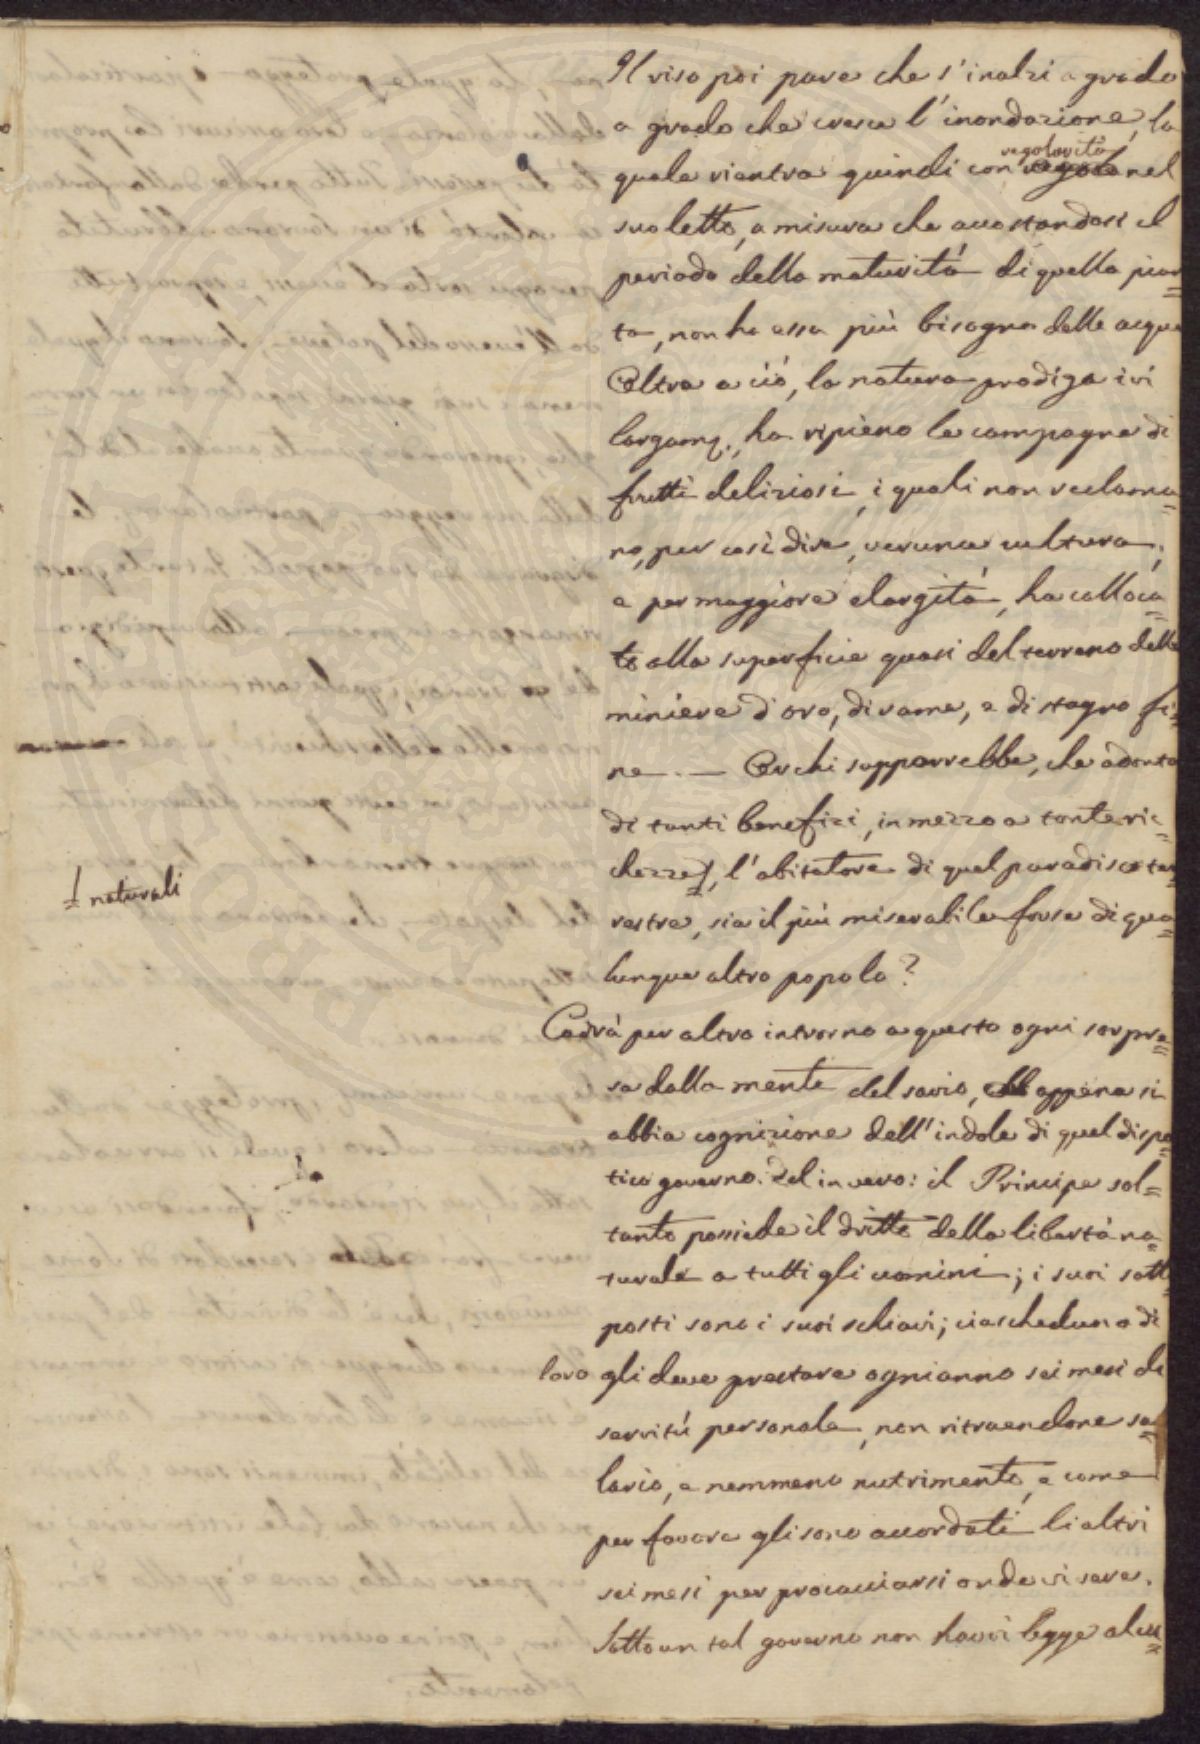 Il riso poi pare che s'inalzi a grado
a grado che cresce l'inondazione, la
regolarità
quale rientra quindi con regola nel
suo letto, a misura che accostandosi il
periodo della maturità di quella pian=
ta, non ha essa più bisogno delle acque
Oltre a ciò, la natura prodiga ivi
largam., ha ripieno le campagne di
frutti deliziosi, i quali non reclama=
no, per così dire, veruna cultura;
e per maggiore elargità, ha colloca=
te alla superficie quasi del terreno delle
miniere d'oro, di rame, e di stagno fi=
ne. — Or chi supporrebbe, che ad onta
di tanti benefizi, in mezzo a tante ric=
chezze, l'abitatore di quel paradiso ter=
naturali
restre, sia il più miserabile forse di qua=
lunque altro popolo?
Cadrà per altro intorno a questo ogni sorpre=
sa dalla mente del savio, appena si
abbia cognizione dell'indole di quel dispo=
tico governo. Del in vero: il Principe sol=
tanto possiede il dritto della libertà na=
turale a tutti gli uomini; i suoi sott=
posti sono i suoi schiavi; ciascheduno di
loro gli deve prestare ogni anno sei mesi di
servitù personale, non ritraendone sa=
lario, e nemmeno nutrimento, e come
per favore gli sono accordati li altri
sei mesi per procacciarsi onde vivere.
Sotto un tal governo non havvi legge alcu=